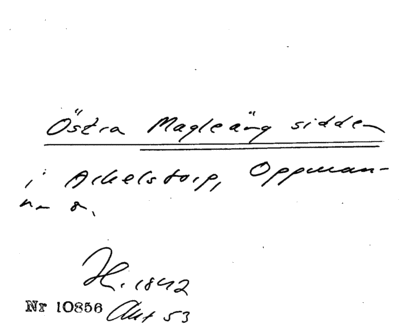 Östra Magleäng sidden
i Arkelstorp, Oppman-
na s.
H. 1842
Nr 10856 Akt 53